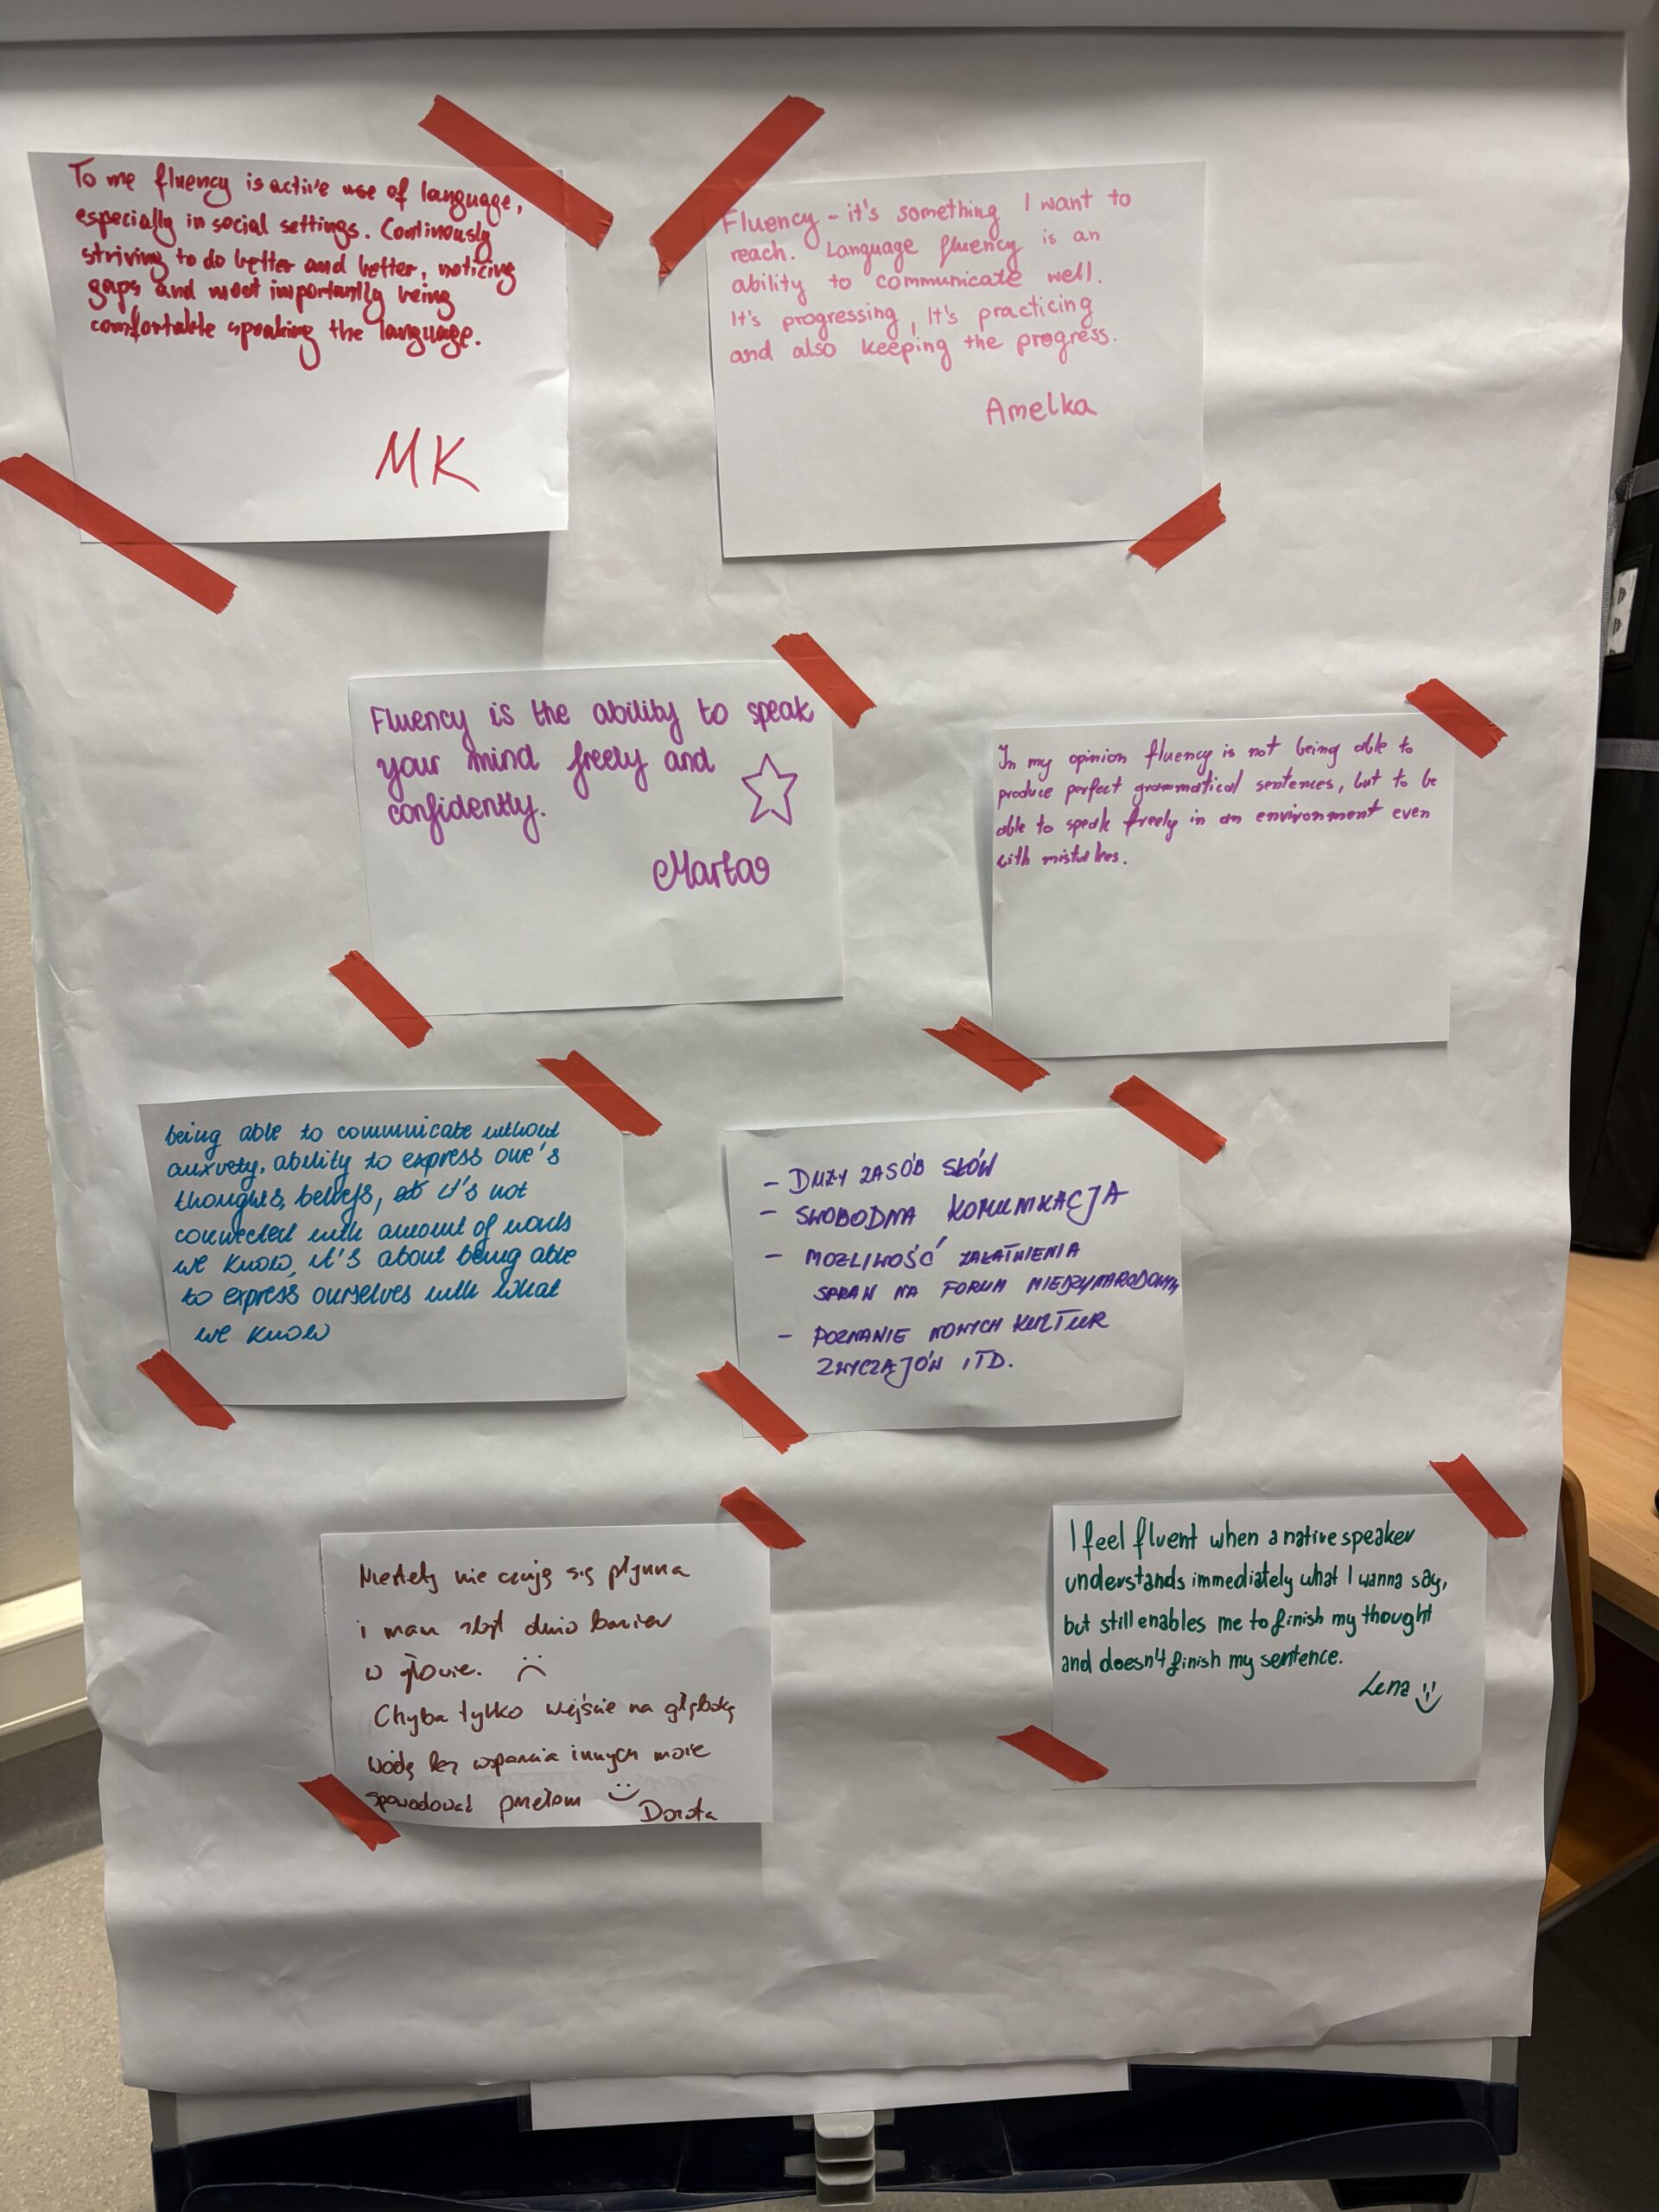 To me fluency is active use of language,
especially in social settings. Continously
striving to do better and better, noticing
gaps and most importantly being
comfortable speaking the language.
MK
Fluency - it's something I want to
reach. Language fluency is an
ability to communicate well.
It's progressing, It's practicing
and also keeping the progress.
Amelka
Fluency is the ability to speak
your mind freely and
confidently.
Marta
In my opinion fluency is not being able to
produce perfect grammatical sentences, but to be
able to speak freely in an environment even
with mistakes.
being able to communicate without
anxvety, ability to express one's
thoughts, beliefs, it's not
connected with amount of words
we know, it's about being able
to express ourselves with what
we know
- DUŻY ZASÓB SŁÓW
- SWOBODNA KOMUNIKACJA
- MOŻLIWOŚĆ ZAŁATWIENIA
SPRAW NA FORUM MIĘDZYNARODOWYM
- POZNANIE NOWYCH KULTUR
ZWYCZAJÓW ITD.
Niestety nie czuję się płynna
i mam zbyt dużo barier
w głowie. :(
Chyba tylko wejście na głęboką
wodę bez wsparcia innych może
spowodować przełom :)
Dorota
I feel fluent when a native speaker
understands immediately what I wanna say,
but still enables me to finish my thought
and doesn't finish my sentence.
Lena :)